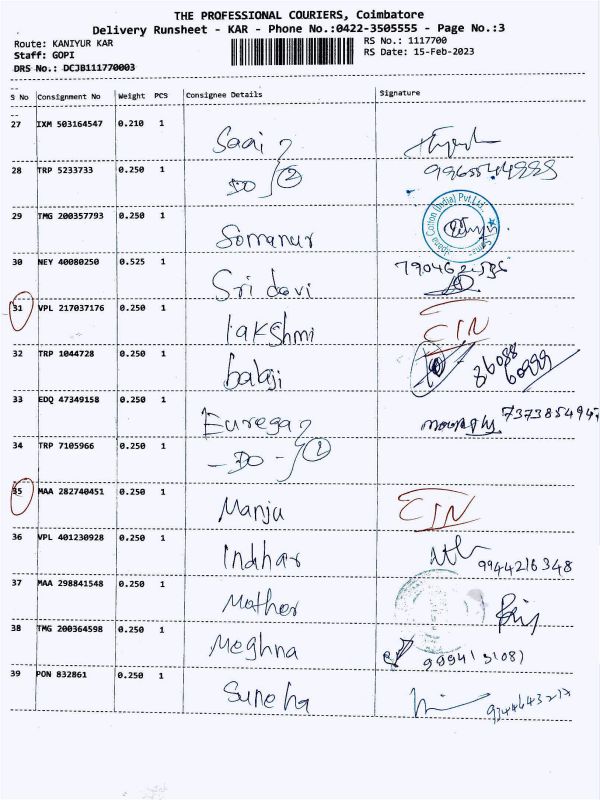 THE PROFESSIONAL COURIERS, Coimbatore
Delivery Runsheet - KAR - Phone No.:0422-3505555 - Page No.:3
Route: KANIYUR KAR RS No.: 1117700
Staff: GOPI RS Date: 15-Feb-2023
DRS No.: DCJB111770003
S No Consignment No Weight PCS Consignee Details Signature
27 IXM 503164547 0.210 1 Saai
28 TRP 5233733 0.250 1 DO 2
29 TMG 200357793 0.250 1 Somanur
30 NEY 40080250 0.525 1 Sri devi
31 VPL 217037176 0.250 1 lakshmi
32 TRP 1044728 0.250 1 balaji
33 EDQ 47349158 0.250 1 Eurega
34 TRP 7105966 0.250 1 - DO - 2
35 MAA 282740451 0.250 1 Manju
36 VPL 401230928 0.250 1 Indhar 9944216348
37 MAA 298841548 0.250 1 Mother
38 TMG 200364598 0.250 1 Meghna
39 PON 832861 0.250 1 Suneha